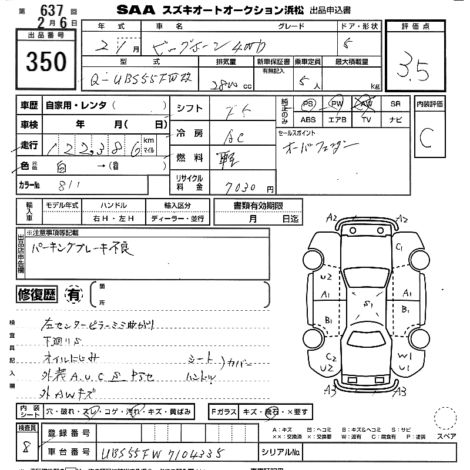 第 637 回 SAA スズキオートオークション浜松 出品申込書
2月6日
出品番号 年式 車名 グレード ドア・形状 評価点
350 2年 ビッグホーン 4WD 5 3.5
型式 排気量 新車保証書 乗車定員 最大積載量
有無記入
Q-UBS55FW改 2800 cc 5人 kg
車歴 自家用・レンタ( ) シフト 純正のみ PS PW AW SR 内装評価
車検 年 月( 日) ABS エアB TV ナビ C
走行 122,386 km マイル 冷房 AC セールスポイント
色 白 →( 色) 燃料 軽 オーバーフェンダー
カラーNo 811 リサイクル料金 7030円
輸入車 モデル年式 ハンドル 輸入区分 書類有効期限
右H・左H ディーラー・並行 月 日迄
※注意事項等記載
出品店申告欄 パーキングブレーキ不良
修復歴 有 箇所
検査員記入欄
左センターピラー
下廻りS
オイルにじみ シート カバー
外装A.U.C ハンドル
外AWキズ
A2 C1 U2 A1 A1 B2 B1 S1 U2 C2 W1 U1 A3
内装シート 穴・破れ・スレ・コゲ・汚れ・キズ・黄ばみ Fガラス キズ・飛石・×要す
A:キズ U:ヘコミ B:キズ&ヘコミ S:サビ
××:交換済 ×:交換要 W:波有 C:腐食有 P:塗装
検査員 登録番号
8 車台番号 UBS55FW7104335 シリアルNo.